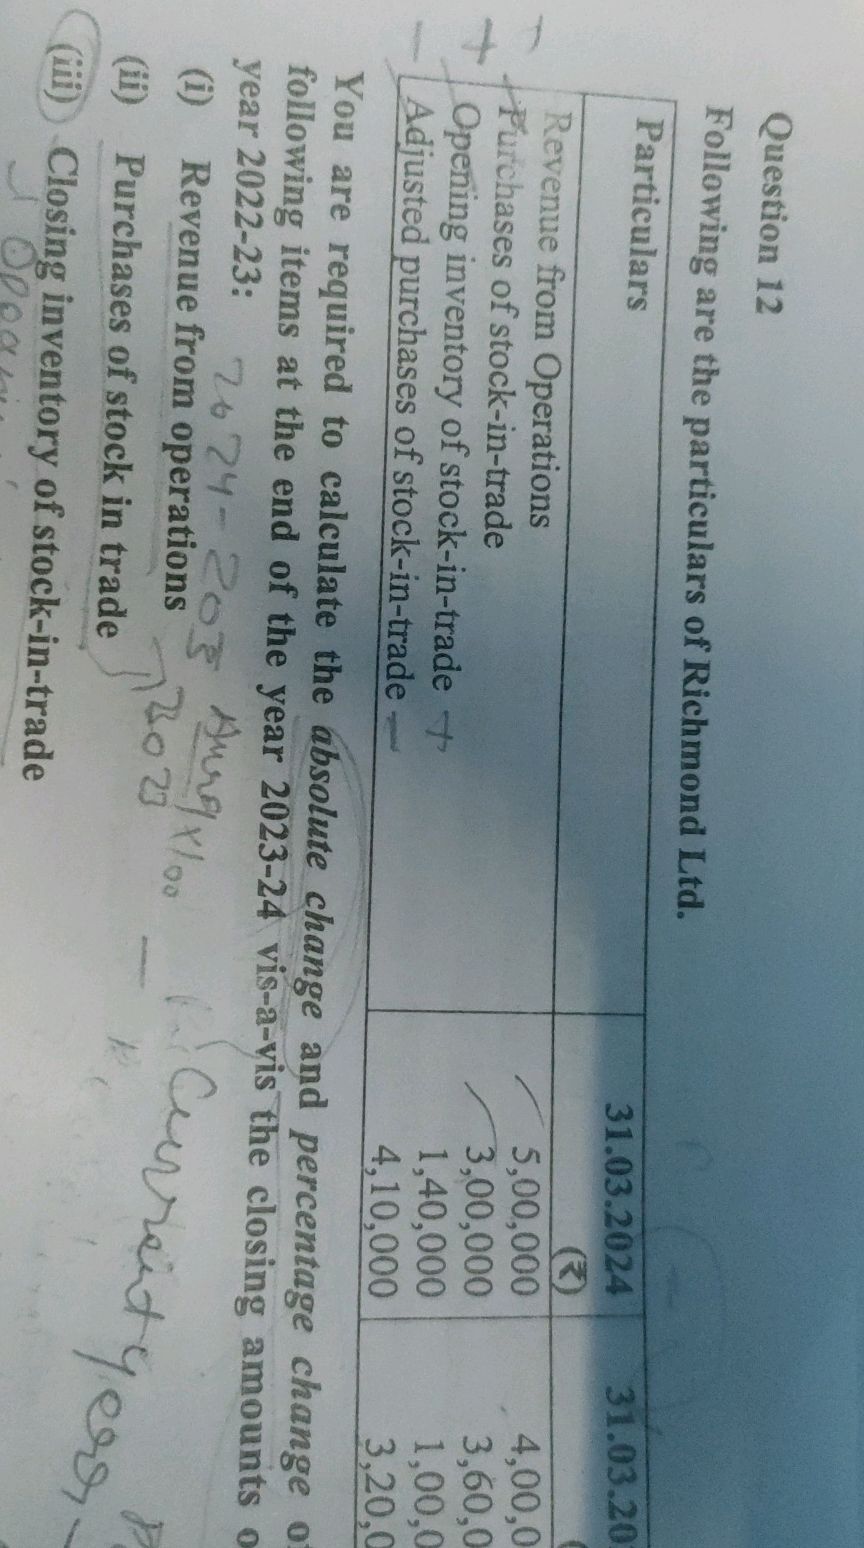 Question 12
Following are the particulars of Richmond Ltd.
Particulars 31.03.2024 31.03.20
(₹) (
Revenue from Operations 5,00,000 4,00,0
Purchases of stock-in-trade 3,00,000 3,60,0
Opening inventory of stock-in-trade + 1,40,000 1,00,0
Adjusted purchases of stock-in-trade – 4,10,000 3,20,0
You are required to calculate the absolute change and percentage change of
following items at the end of the year 2023-24 vis-a-vis the closing amounts o
year 2022-23:
(i) Revenue from operations
(ii) Purchases of stock in trade
2023
Current year
(iii) Closing inventory of stock-in-trade